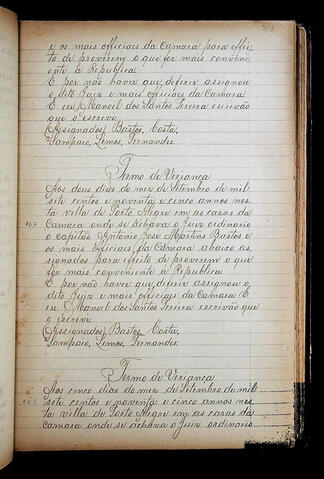 e os mais officiaes da Camara para effei
to de proverem o que for mais conveni
ente à Republica
E por não haver que deferir assignou
o dito Juiz e mais officiaes da Camara
E eu Manoel dos Santos Pereira escrivão
que o escrevi
(Assignados) Bastos, Costa,
Sampaio, Lemos, Fernandes.
Termo de Veriança
Aos dous dias do mez de Setembro de mil
sete centos e noventa e cinco annos nes
ta villa de Porto Alegre em as cazas da
Camara onde se achava o Juiz ordinario
o capitão Antonio José Martins Bastos e
os mais Officiaes da Camara abaixo as
signados para effeito de proverem o que
for mais conviniente à Republica
E por não haver que deferir assignou o
dito Juiz e mais officiaes da Camara E
eu Manoel dos Santos Pereira escrivão que
o escrevi
(Assignados) Bastos, Costa,
Sampaio, Lemos, Fernandes
Termo de Veriança
Aos cinco dias do mez de Setembro de mil
sete centos e noventa e cinco annos nes
ta villa de Porto Alegre em as cazas da
Camara onde se achava o Juiz ordinario